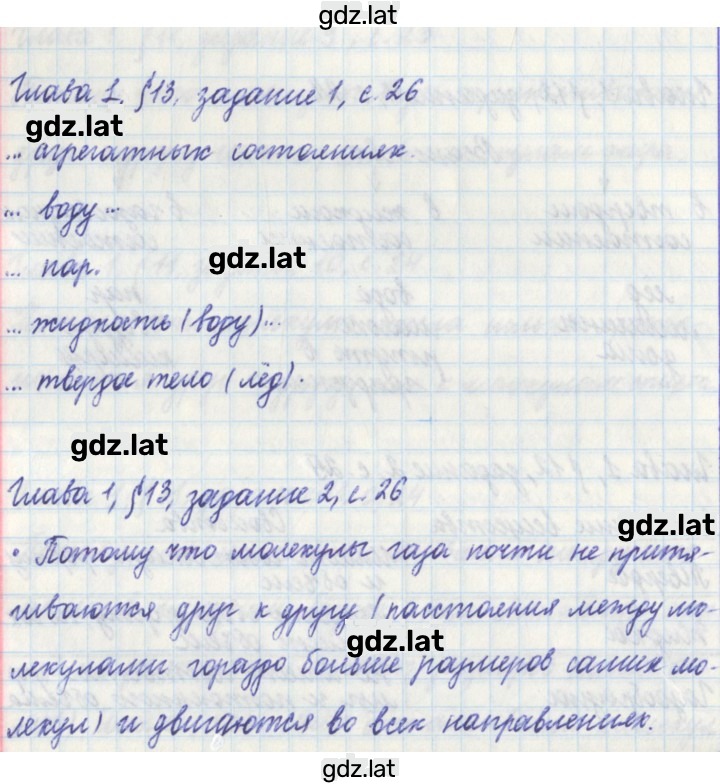 gdz.lat
Глава 1. §13, задание 1, с. 26
gdz.lat
... агрегатных состояниях.
... воду ...
gdz.lat
... пар.
... жидкость (воду)...
... твердое тело (лёд).
gdz.lat
Глава 1, §13, задание 2, с. 26
gdz.lat
• Потому что молекулы газа почти не притя-
гиваются друг к другу (расстояния между мо-
gdz.lat
лекулами гораздо больше размеров самих мо-
лекул) и двигаются во всех направлениях.
gdz.lat